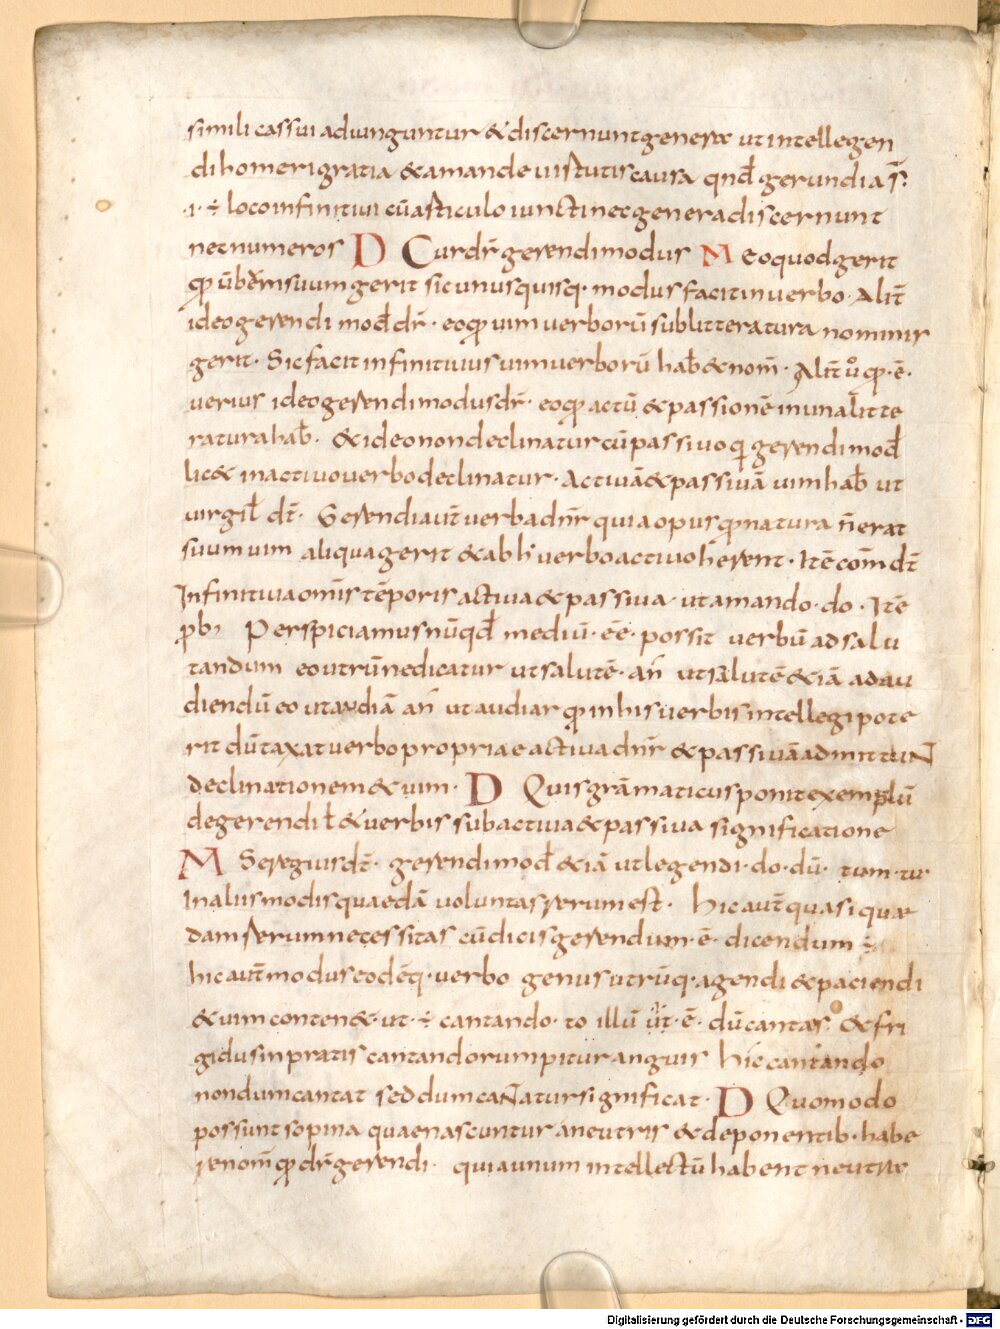 simili cassui adiunguntur & discernunt genera ut intellegen
di homeri gratia & amande uirtutis causa qnđ gerundia s̄.
.i. ÷ loco infinitiui cū articulo iuncti nec genera discernunt
nec numeros D Cur dr̄ gerendi modus M Eo quod gerit
suum gerit sic unusquisq· modus facit in uerbo. Alit̄
ideo gerendi mod̄ dr̄. eo uim uerborū sub litteratura nominis
gerit. Sic facit infinitiuus uim uerborū hab& nom̄. Alit̄ ē.
uerius ideo gerendi modus dr̄. eo actū & passionē in una litte
ratura hab̄. & ideo non declinatur cū passiuo q gerendi mod̄
lic& in actiuo uerbo declinatur. Actiuā & passiuā uim hab̄ ut
uirgil̄ dt̄. Gerendi aut̄ uerba dnr̄ quia opus natura n̄ erat
suum uim aliqua gerit & ab h uerbo actiuo herent. Itē com̄ dt̄
Infinitiua omīs tēporis actiua & passiua ut amando. do. Itē
ꝓb, Perspiciamus nūqđ mediū. ēē. possit uerbū ad salu
tandum eo utrū ne dicatur ut salutē. an̄ ut salutē & iā ad au
diendū eo ut audiā an̄ ut audiar in his uerbis intellegi pote
rit dūtaxat uerbo propriae actiua dnr̄ & passiuā admittuN
declinationem & uim. D Quis grāmaticus ponit exemplū
de gerendi & uerbis sub actiua & passiua significatione
M Seregius dt̄. gerendi mod̄ & iā ut legendi. do. dū. tum. tu.
In aliis modis quaedā uoluntas rerum est. hic aut̄ quasi quae
dam rerum necessitas cū dicis gerendum. ē. dicendum ÷
hic aut̄ modus eodēq· uerbo genus utrūq· agendi & paciendi
& uim conten&. ut. ÷ cantando. to illū ē. dū cantas. & fri
gidus in pratis cantando rumpitur anguis hic cantando
non dum cantat sed dum caNatur significat. D Quomodo
possunt sopina quae nascuntur a neutris & deponentib. habe
re nom̄ dr̄ gerendi. quia unum intellectū habent neutra
Digitalisierung gefördert durch die Deutsche Forschungsgemeinschaft - DFG